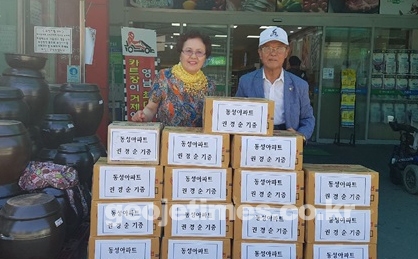 동성아파트
권경순 기증
동성아파트
권경순 기증
동성아파트
권경순 기증
동성아파트
권경순 기증
동성아파트
권경순 기증
동성아파트
권경순 기증
동성아파트
권경순 기증
동성아파트
권경순 기증
동성아파트
권경순 기증
동성아파트
권경순 기증
동성아파트
권경순 기증
동성아파트
권경순 기증
동성아파트
동성아파트
동성아파트
동성아파트
geojetimes.co.kr